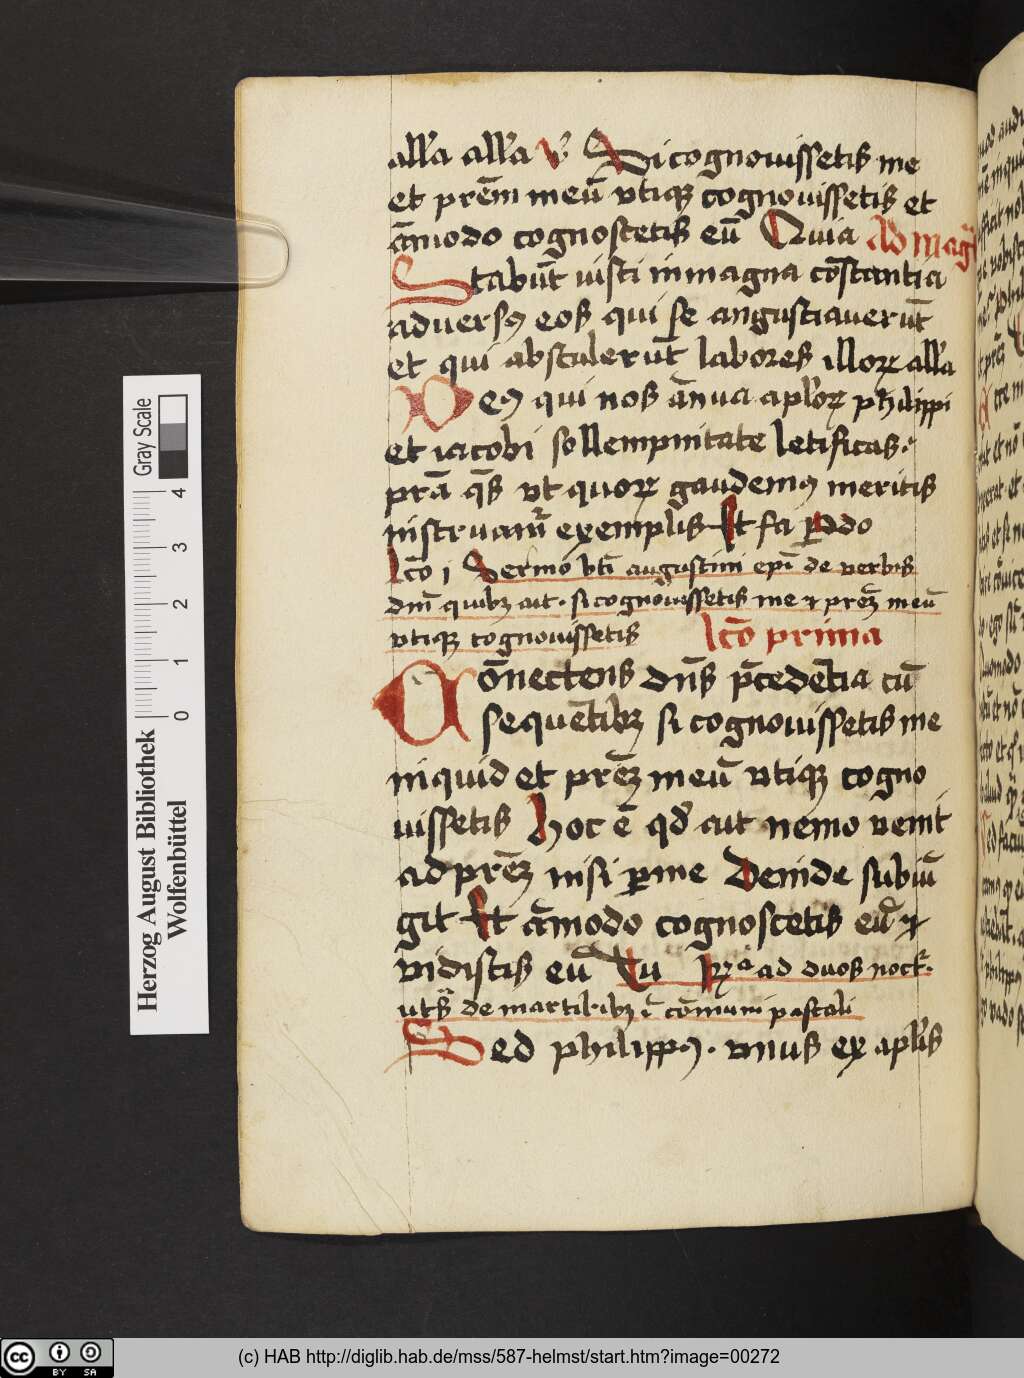 all'a all'a v̕ Si cognouissetis me
et prēm meū vtiqꝫ cognouissetis et
āmodo cognoscetis eū Quia Ad mag̕
Stabūt iusti in magna cōstantia
aduersꝯ eos qui se angustiauerūt
et qui abstulerūt labores illoꝝ all'a
Deꝯ qui nos ānua apl'oꝝ philippi
et iacobi sollempnitate letificas·
prā q̄s vt quoꝝ gaudemꝯ meritis
instruam̕ exemplis Et fa ꝑdo
lcō i Sermo bt̄i augustini ep̄i de verbis
dn̄i quibꝫ ait· si cognouissetis me ⁊ prēꝫ meū
vtiqꝫ cognouissetis lcō prima
Cōnectens dn̄s p̄cedētia cū
sequētibꝫ si cognouissetis me
inquid et prēꝫ meū vtiqꝫ cogno
uissetis hoc ē qd̕ ait nemo venit
ad prēꝫ nisi ꝑ me Deinde subiū
git Et āmodo cognoscetis eū ⁊
vidistis eū Tu ad duos noct̕·
uts̕ de martiribꝫ ī cōmuni pascali
Sed philippꝯ· vnus ex apl'is
Herzog August Bibliothek
Wolfenbüttel
0 1 2 3 4
Gray Scale
cc BY SA
(c) HAB http://diglib.hab.de/mss/587-helmst/start.htm?image=00272